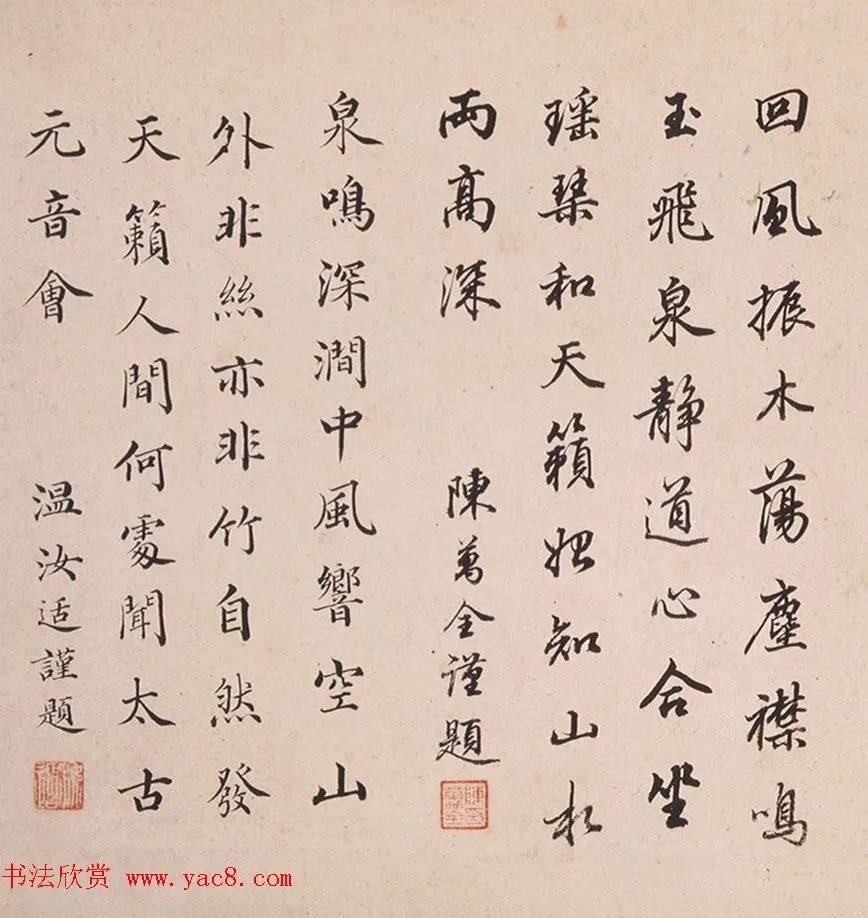 回風振木蕩塵襟鳴
玉飛泉静道心合坐
瑶琹和天籟始知山水
兩高深
陳萬全謹題
泉鳴深澗中風響空山
外非絲亦非竹自然發
天籟人間何處聞太古
元音會
温汝适謹題
书法欣赏 www.yac8.com